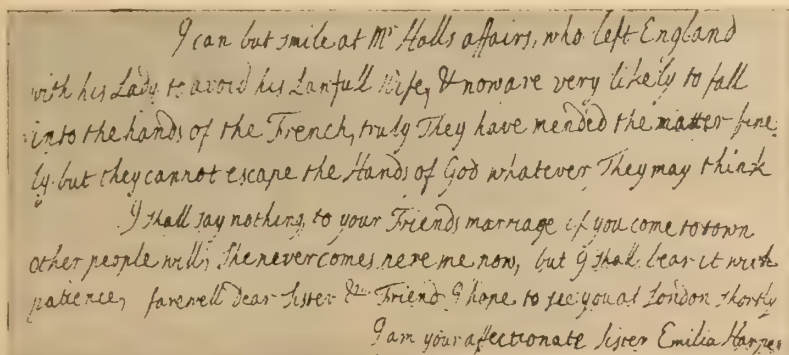 I can but smile at Mr Halls affairs, who left England
with his Lady to avoid his Lanfull Wife, & now are very likely to fall
into the hands of the French, truly They have mended the matter fine
ly but they cannot escape the Hands of God whatever They may think
I shall say nothing, to your Friends marriage if you come to town
other people will, She never comes nere me now, but I shall bear it with
patience, farewell Dear Sister & Friend I hope to see you at London shortly
I am your affectionate Sister Emilia Harpe